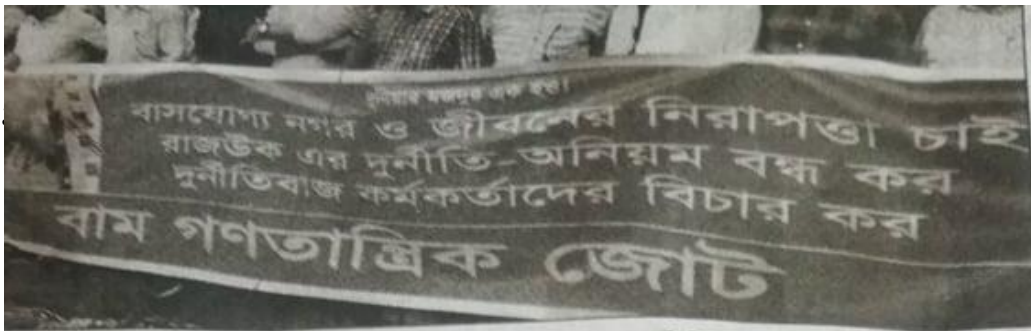 দুনিয়ার মজদুর এক হও।
বাসযোগ্য নগর ও জীবনের নিরাপত্তা চাই
রাজউক এর দুর্নীতি-অনিয়ম বন্ধ কর
দুর্নীতিবাজ কর্মকর্তাদের বিচার কর
বাম গণতান্ত্রিক জোট